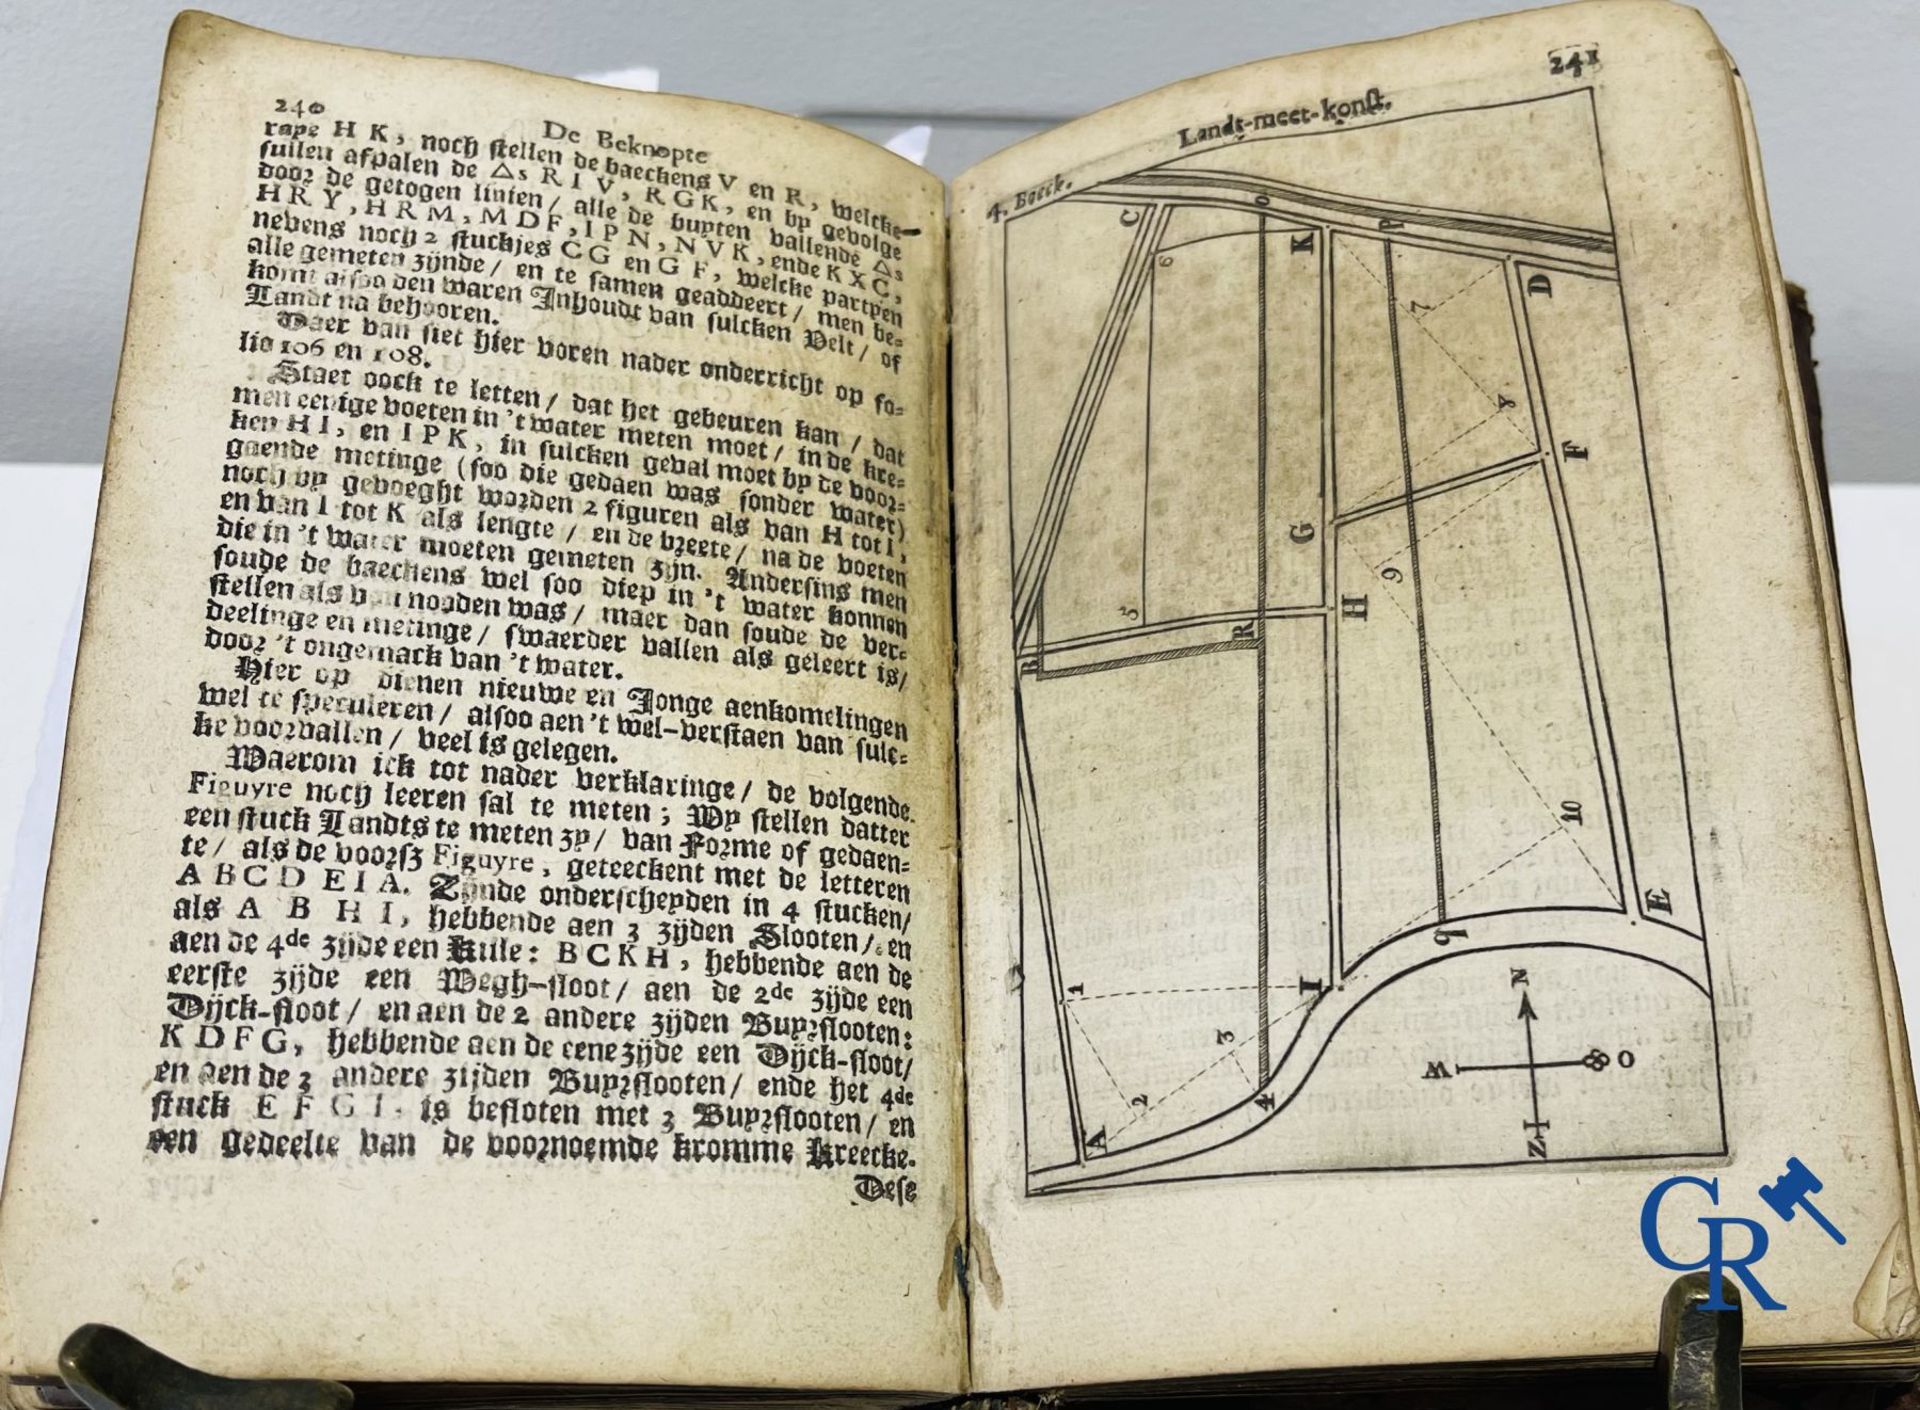 240
De Beknopte
rape H K, noch stellen de baeckens V en R, welcke
sullen afpalen de △s R I V, R G K, en by gevolge
door de getogen linien / alle de buyten vallende △s
H R Y, H R M, M D F, I P N, N V K, ende K X C,
nevens noch 2 stuckjes C G en G F, welcke partyen
alle gemeten zijnde / en te samen geaddeert / men be-
komt alsoo den waren Inhoudt van sulcken Velt / of
Landt na behooren.
Daer van siet hier voren nader onderricht op fo-
lio 106 en 108.
Staet oock te letten / dat het gebeuren kan / dat
men eenige voeten in 't water meten moet / in de kre-
ken H I, en I P K, in sulcken geval moet by de voor-
gaende metinge (soo die gedaen was sonder water)
noch by gevoeght worden 2 figuren als van H tot I,
en van I tot K als lengte / en de breete / na de voeten
die in 't water moeten gemeten zijn. Andersins men
soude de baeckens wel soo diep in 't water konnen
stellen als van nooden was / maer dan soude de ver-
deelinge en metinge / swaerder vallen als geleert is /
door 't ongemack van 't water.
Hier op dienen nieuwe en Jonge aenkomelingen
wel te speculeren / alsoo aen 't wel-verstaen van sulc-
ke voorvallen / veel is gelegen.
Waerom ick tot nader verklaringe / de volgende
Figuyre noch leeren sal te meten ; Wy stellen datter
een stuck Landts te meten zy / van Forme of gedaen-
te / als de voorsz Figuyre, geteeckent met de letteren
A B C D E I A. Zijnde onderscheyden in 4 stucken /
als A B H I, hebbende aen 3 zijden Slooten / en
aen de 4de zijde een Kille: B C K H, hebbende aen de
eerste zijde een Wegh-sloot / aen de 2de zijde een
Dijck-sloot / en aen de 2 andere zijden Buyrslooten:
K D F G, hebbende aen de eene zijde een Dijck-sloot /
en aen de 3 andere zijden Buyrslooten / ende het 4de
stuck E F G I. is besloten met 3 Buyrslooten / en
een gedeelte van de voornoemde kromme Kreecke.
Dese
241
Landt-meet-konst.
4. Boeck.
C
o
K
P
D
6
7
8
F
G
9
5
H
R
B
10
E
q
I
1
3
2
4
A
N
W
O
Z
CR